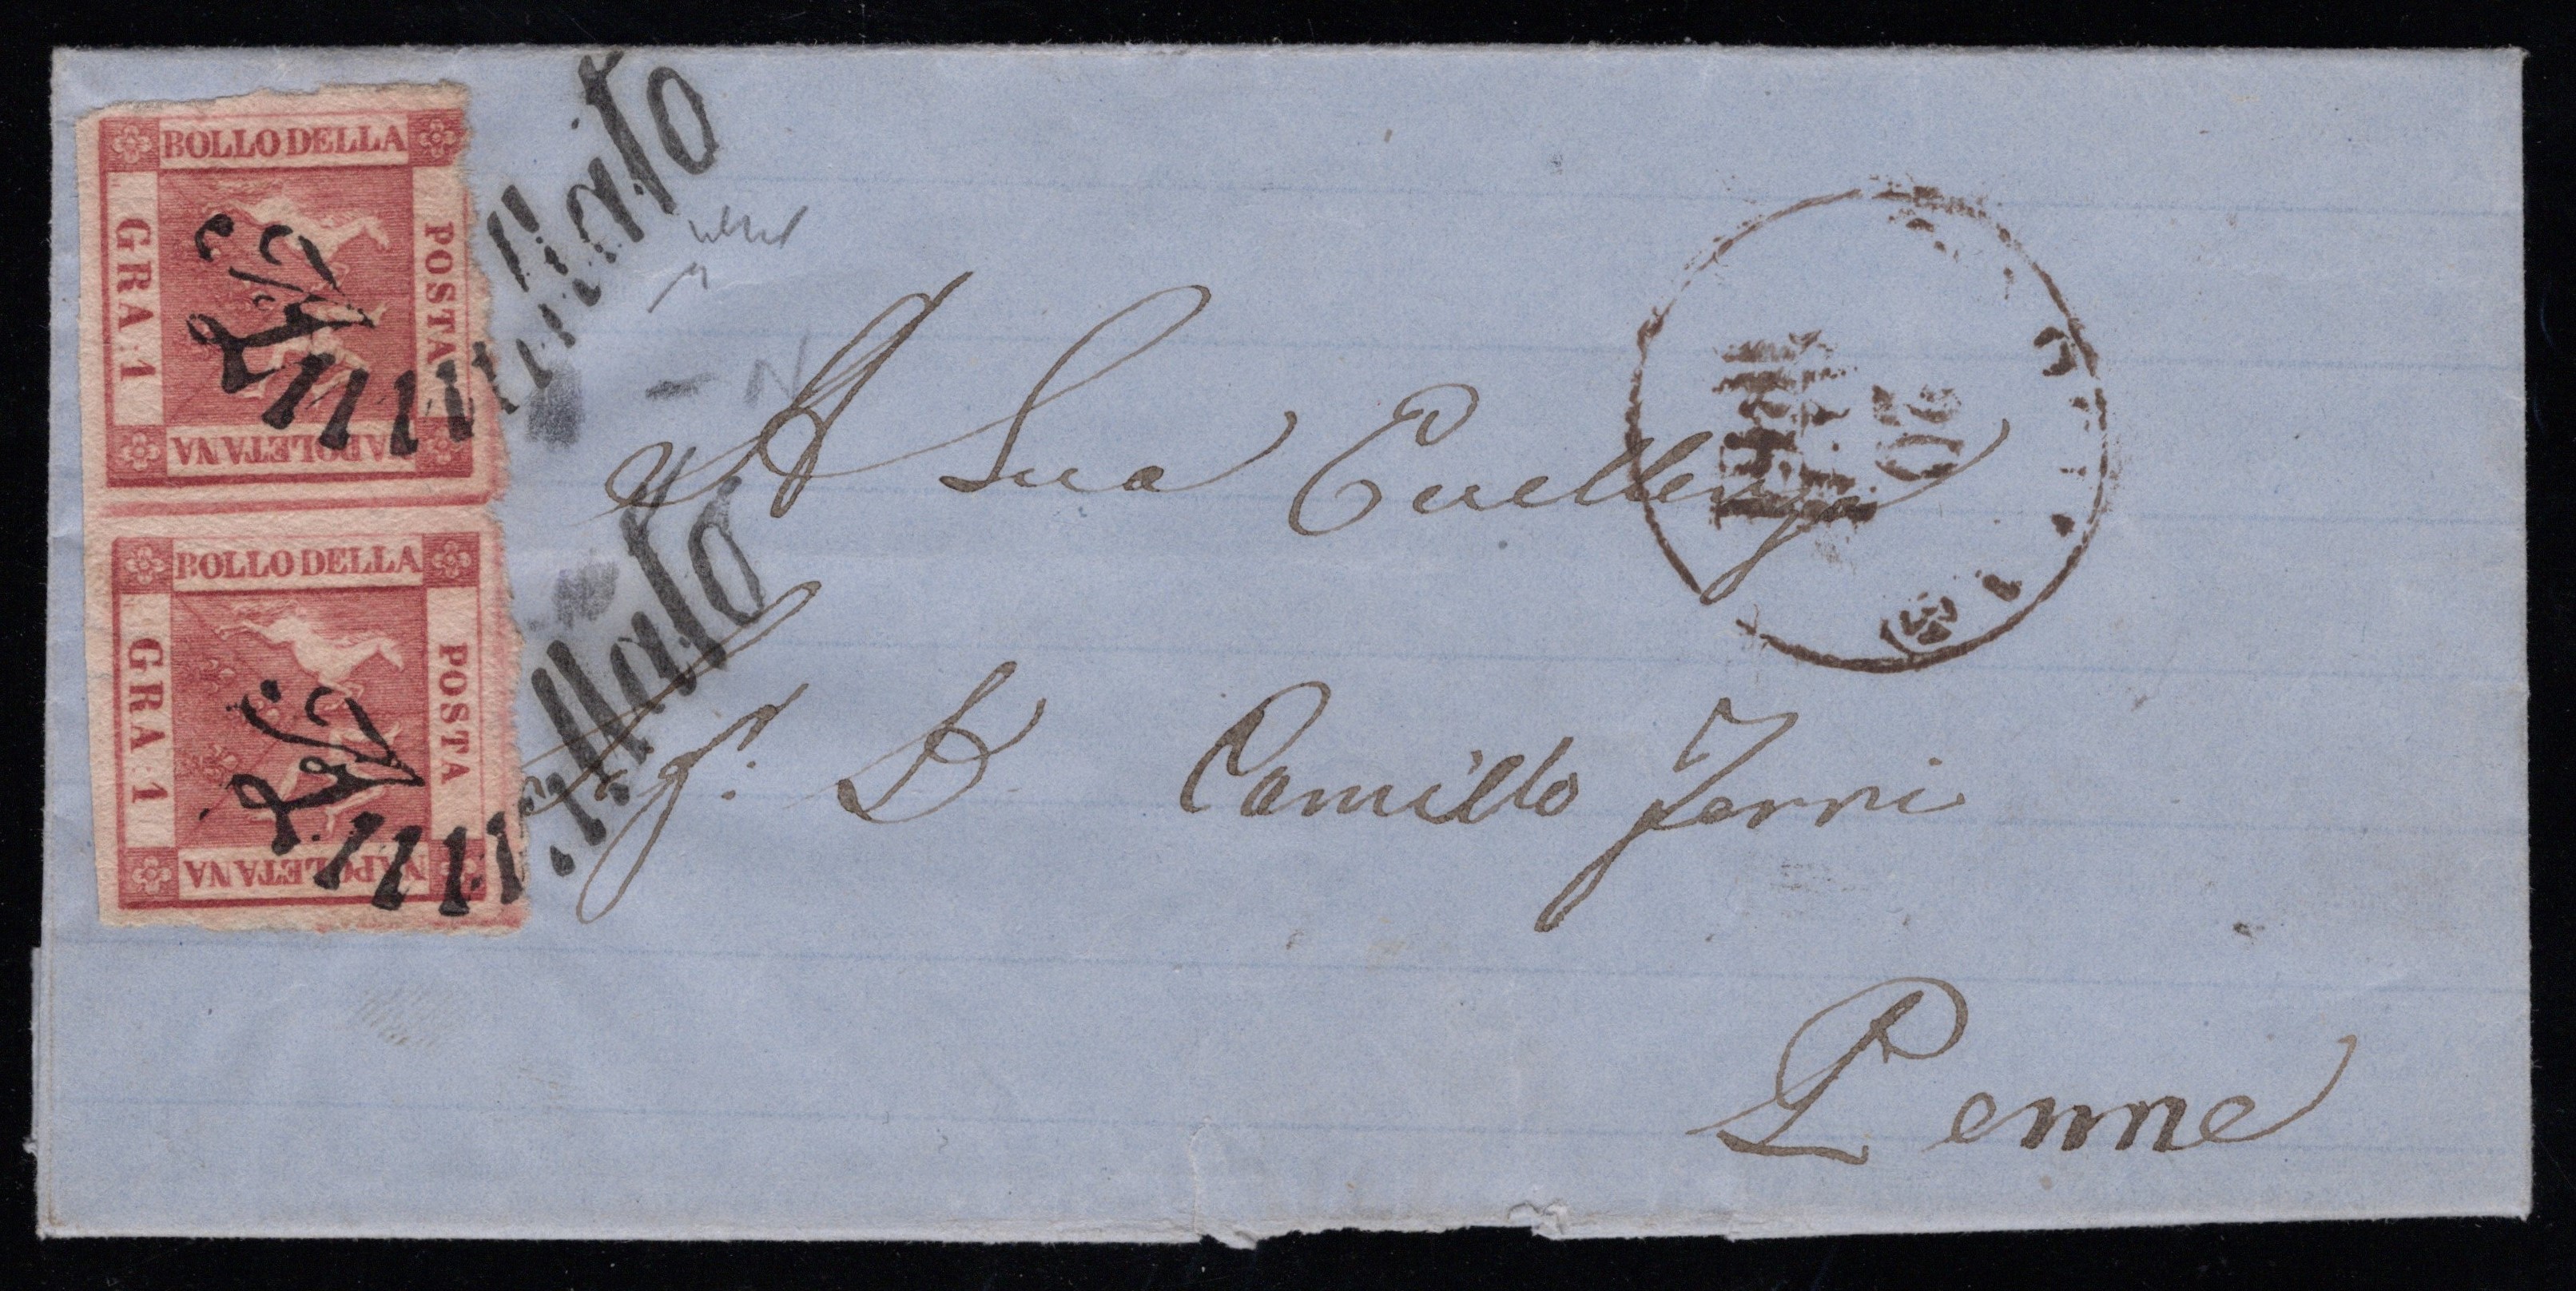 BOLLO DELLA
POSTA
NAPOLETANA
GRA 1
Annullato
BOLLO DELLA
POSTA
NAPOLETANA
GRA 1
Annullato
20
A Sua Eccellenza
D Camillo
Penne